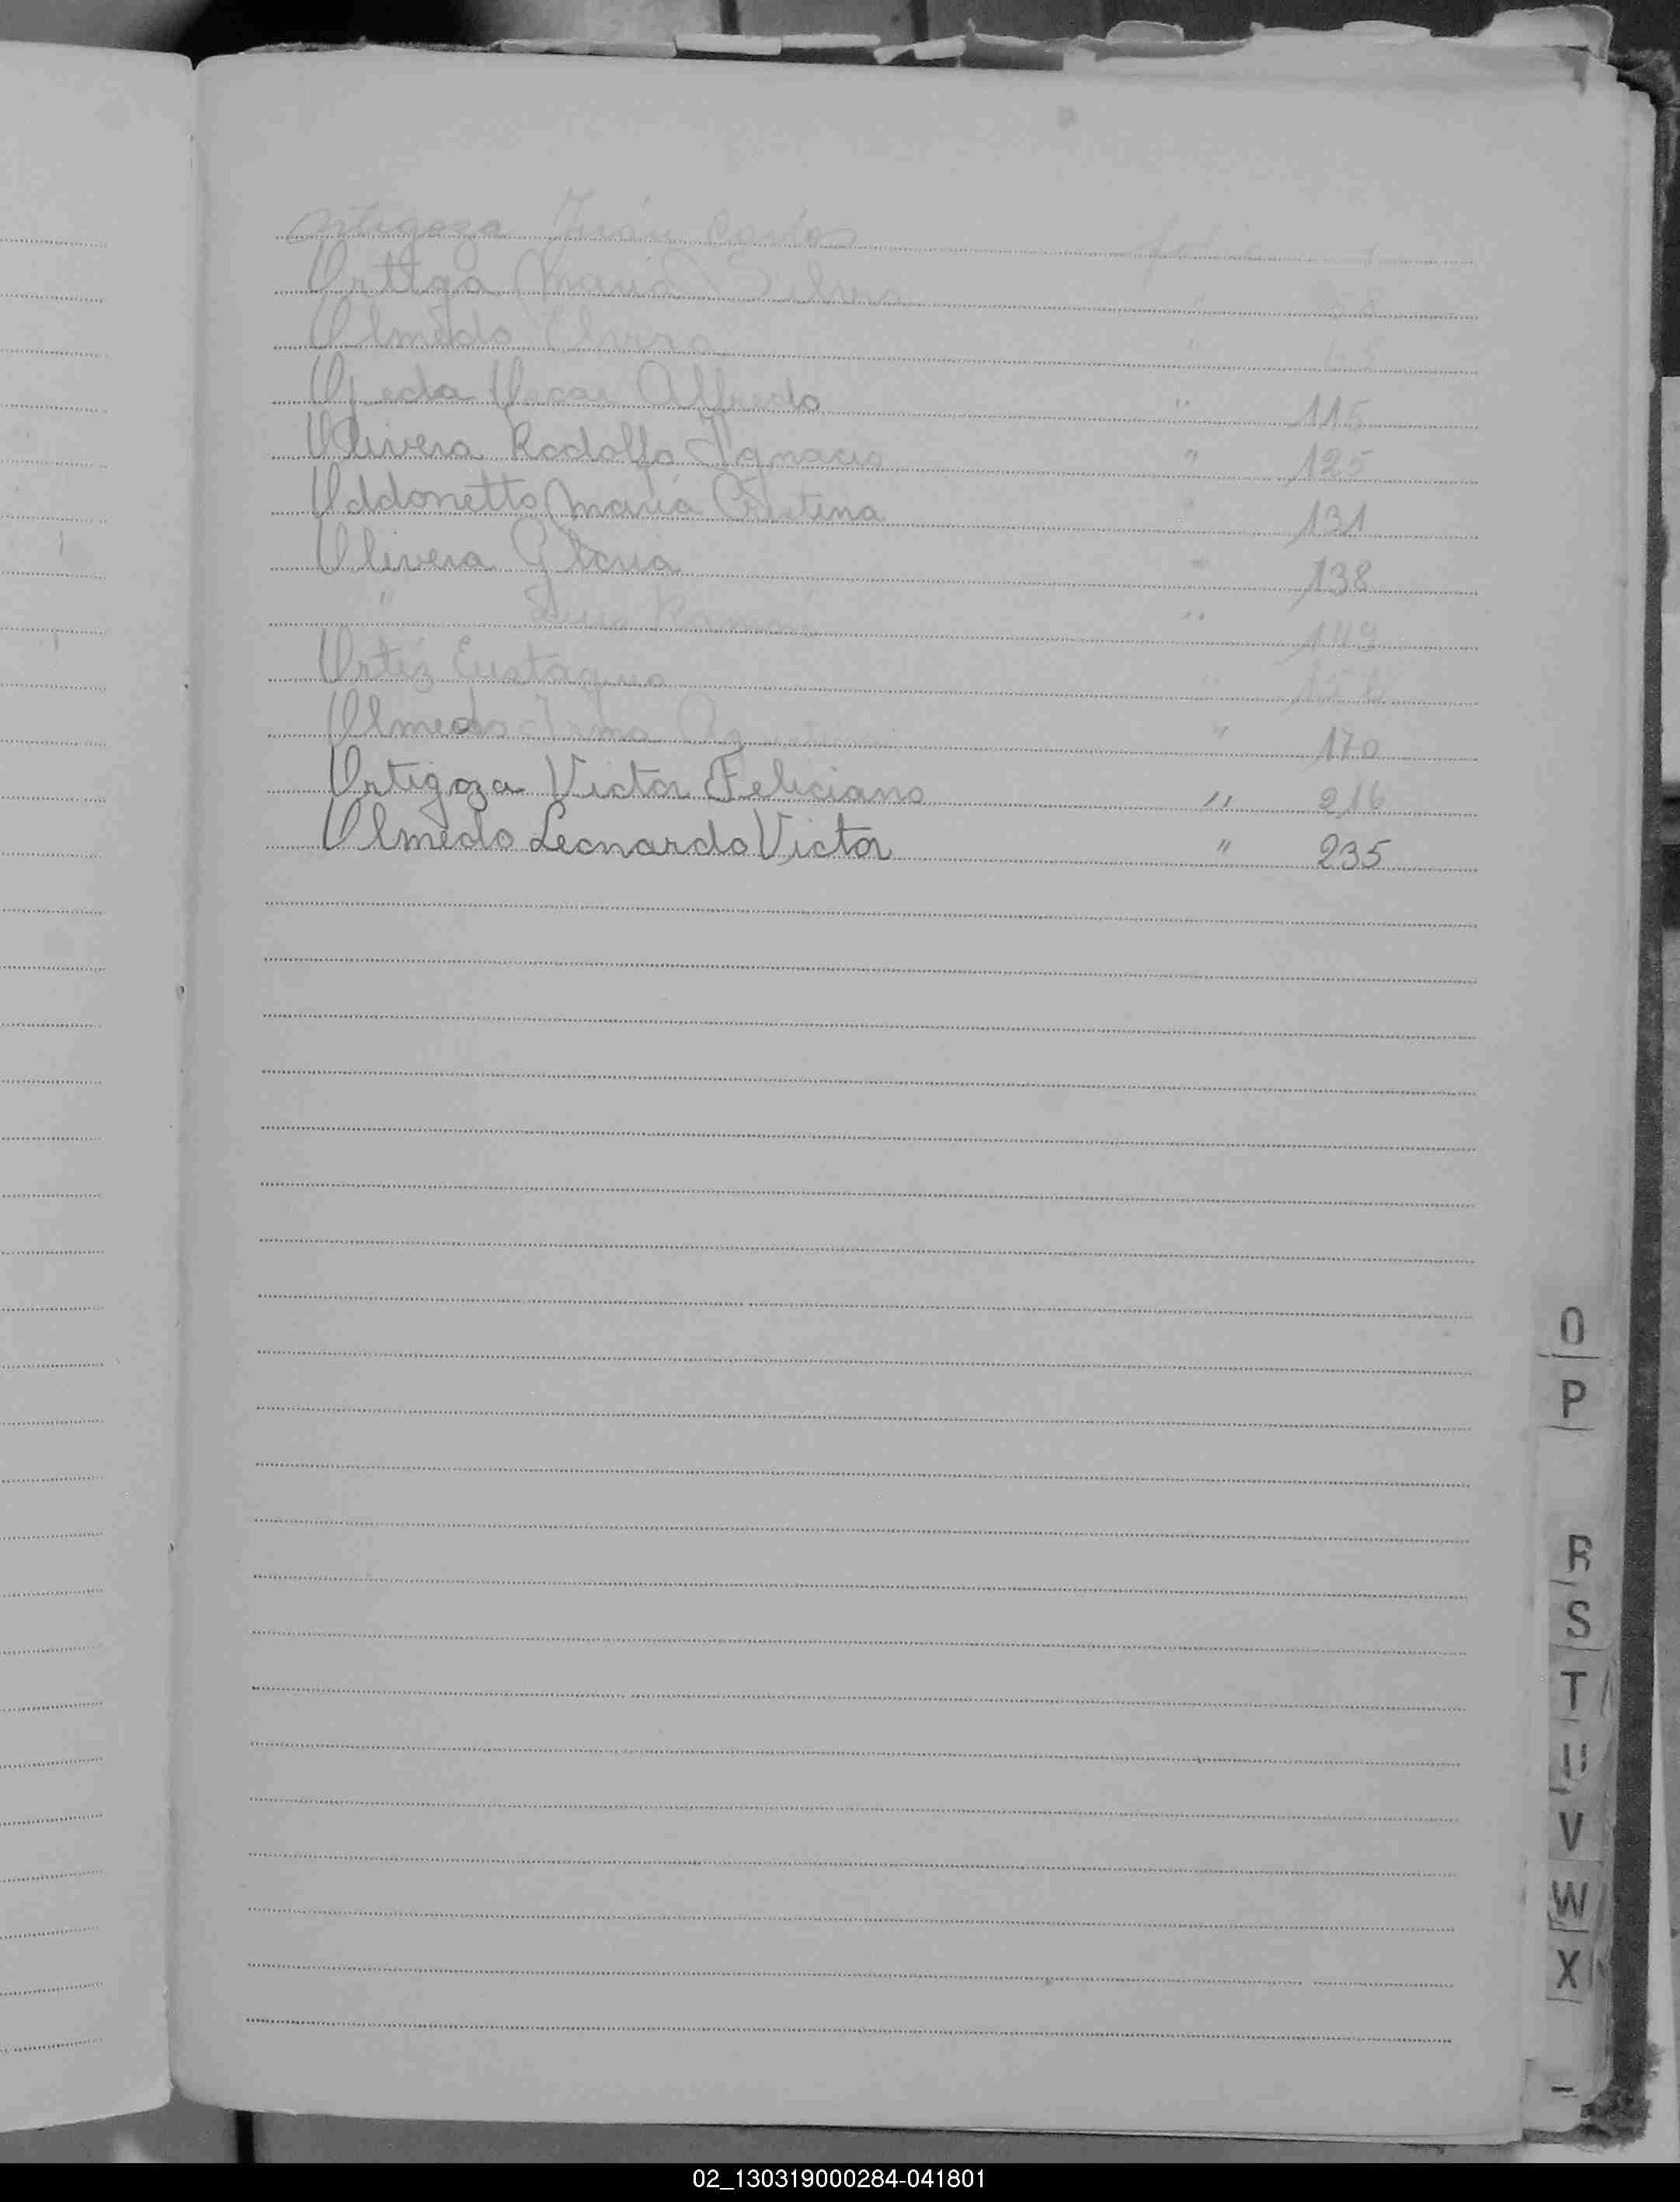 Ortigoza Juán Carlos folio
Ortiga María Silvia "
Olmedo Elvira "
Ojeda Oscar Alfredo " 115
Olivera Rodolfo Ignacio " 125
Oddonetto María Cristina " 131
Olivera Gloria " 138
" Luis Ramón " 149
Ortíz Eustaquio "
Olmedo Irma " 170
Ortigoza Victor Feliciano " 216
Olmedo Leonardo Victor " 235
O
P
R
S
T
U
V
W
X
02_130319000284-041801